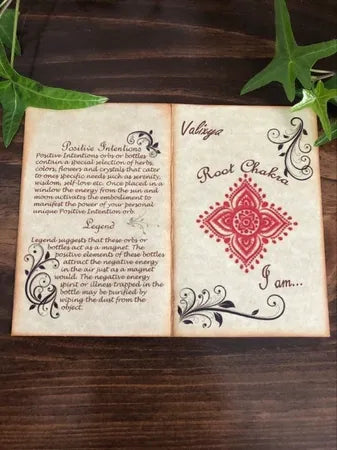 Positive Intentions
Positive Intentions orbs or bottles
contain a special selection of herbs,
colors, flowers and crystals that cater
to ones specific needs such as serenity,
wisdom, self-love etc. Once placed in a
window the energy from the sun and
moon activates the embodiment to
manifest the power of your personal
unique Positive Intention orb.
Legend
Legend suggests that these orbs or
bottles act as a magnet. The
positive elements of these bottles
attract the negative energy
in the air just as a magnet
would. The negative energy
spirit or illness trapped in the
bottle may be purified by
wiping the dust from the
object.
Valixya
Root Chakra
I am...